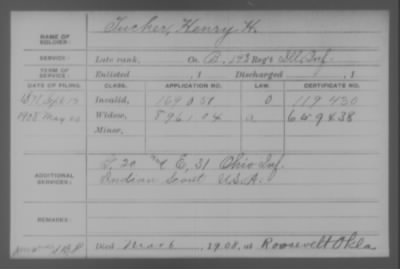 NAME OF SOLDIER: Tucker, Henry H.
SERVICE: Late rank, Co. B, 193 Reg't Ill Inf.
TERM OF SERVICE: Enlisted , 1 Discharged , 1
DATE OF FILING. CLASS. APPLICATION NO. LAW. CERTIFICATE NO.
1871 Sept 19 Invalid, 169 031 119 430
1908 May Widow, 896104
Minor,
ADDITIONAL SERVICES: E, 31 Ohio Inf.
Indian Scout U.S.A.
REMARKS:
Died Mar 6, 1908, at Roosevelt Okla